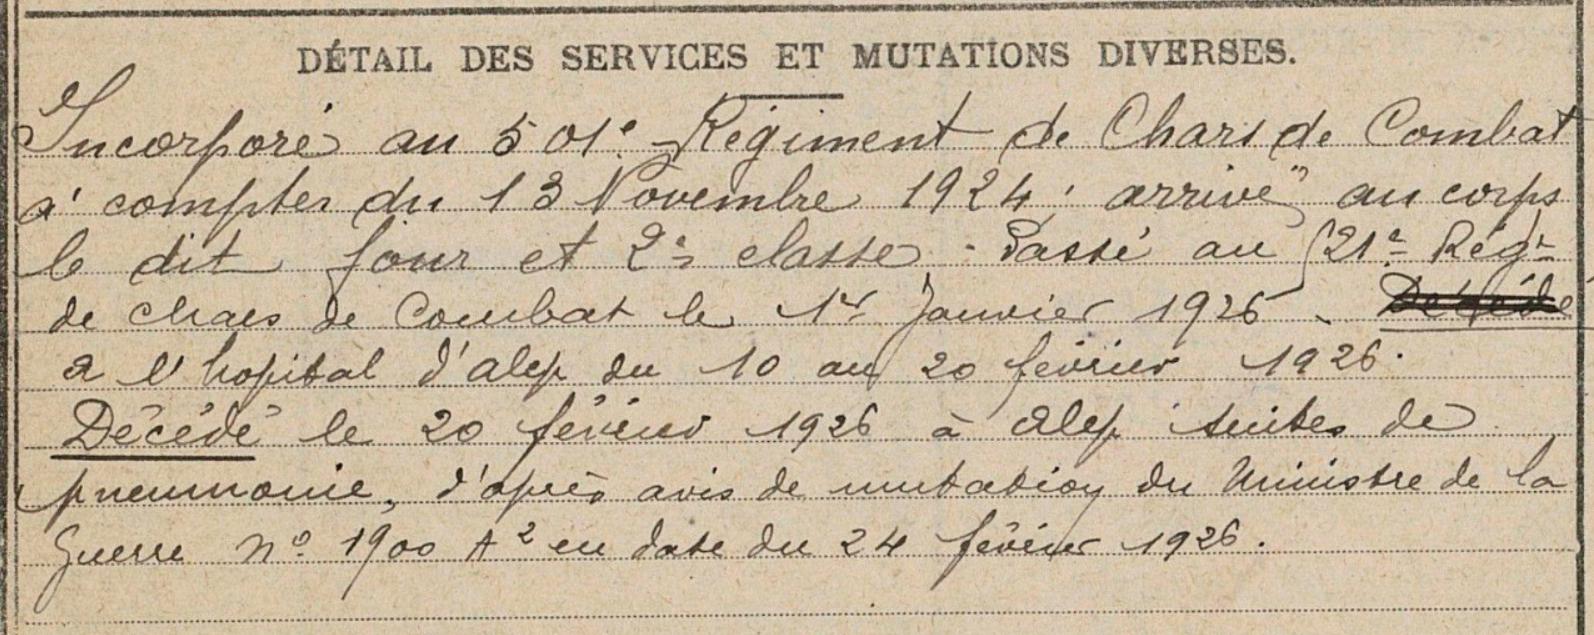 DÉTAIL DES SERVICES ET MUTATIONS DIVERSES.
Incorporé au 501e Régiment de Chars de Combat
à compter du 13 Novembre 1924, arrivé au corps
le dit jour et 2e classe. Passé au 521e Régt
de chars de Combat le 1er Janvier 1926. Décédé
a l'hopital d'alep du 10 au 20 février 1926.
Décédé le 20 février 1926 à alep suites de
pneumonie, d'après avis de mutation du Ministre de la
Guerre No 1900 A2 en date du 24 février 1926.